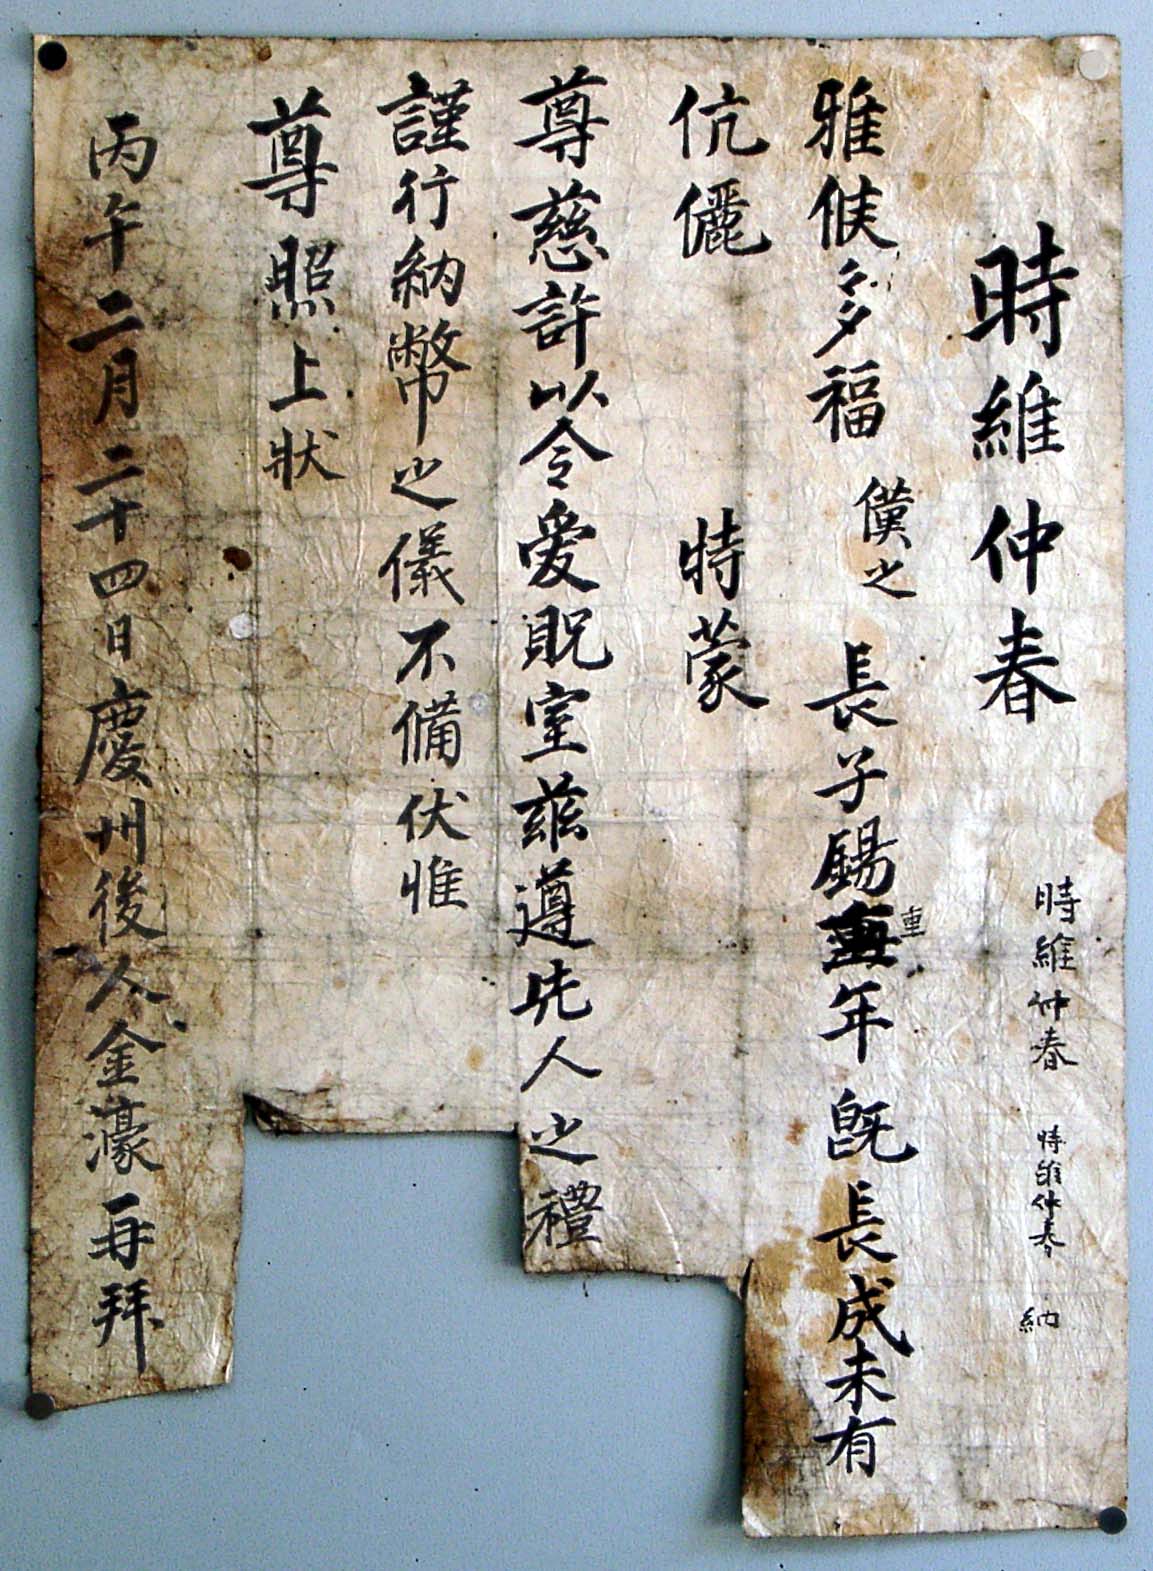 時維仲春 時維仲春 納
時維仲春
雅候多福 僕之 長子錫重年既長成未有
伉儷 特蒙
尊慈許以令愛貺室玆遵先人之禮
謹行納幣之儀不備伏惟
尊照上狀
丙午二月二十四日慶州後人金濠再拜